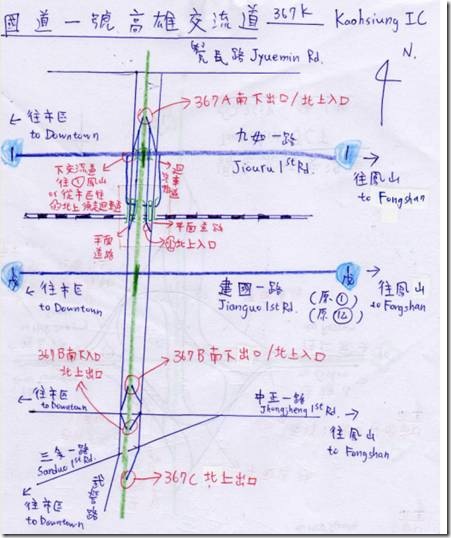 國道一號高雄交流道 367K Kaohsiung IC
N.
覺民路 Jyuemin Rd.
367A南下出口/北上入口
往市區
to Downtown
九如一路
Jiouru 1st Rd.
1
1
往鳳山
to Fongshan
下交流道
往①鳳山
or 從市區往
迴車道
平面道路
平面道路
北上入口
往市區
to Downtown
建國一路
Jianguo 1st Rd.
(原①)
往鳳山
to Fongshan
367B南下入口
北上出口
367B南下出口/北上入口
往市區
to Downtown
中正一路
Jhongjheng 1st Rd.
往鳳山
to Fongshan
三多一路
Sanduo 1st Rd.
武營路
367C 北上出口
往市區
to Downtown